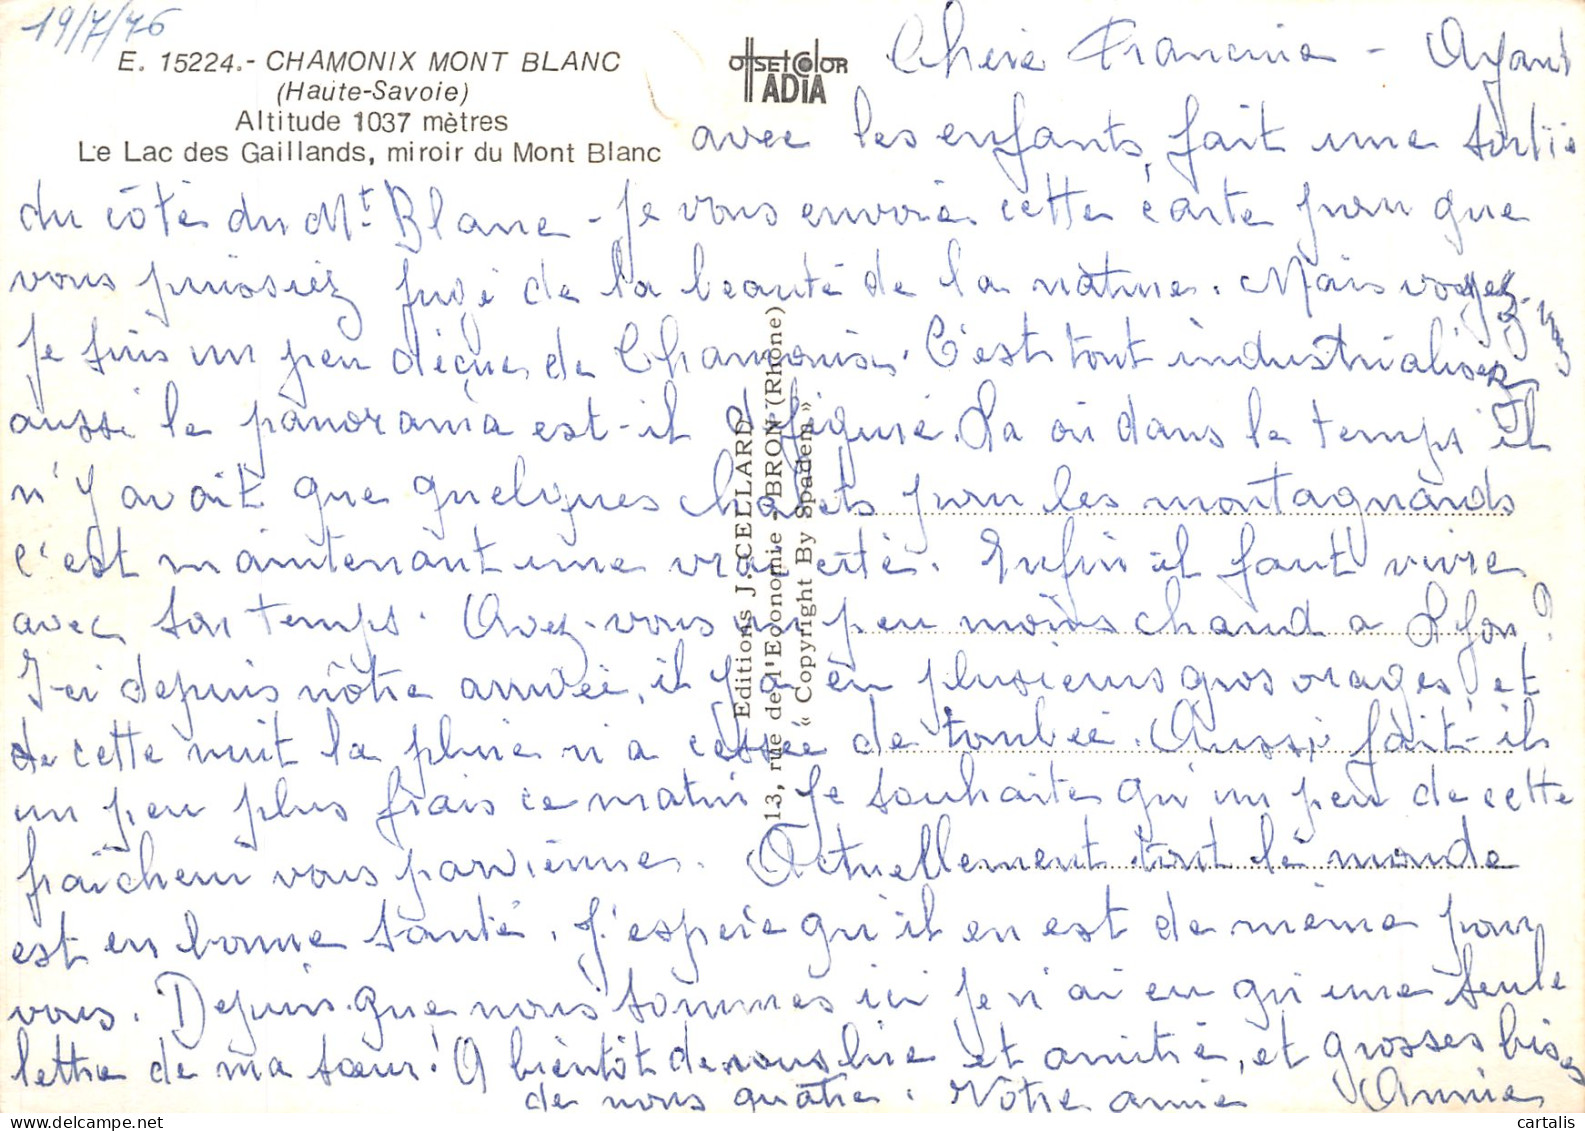 19/7/76
E. 15224.- CHAMONIX MONT BLANC
(Haute-Savoie)
Altitude 1037 mètres
Le Lac des Gaillands, miroir du Mont Blanc
OffSEtColOR
ADiA
Editions J. CELLARD
13, rue de l'Economie - BRON (Rhône)
« Copyright By Spadem »
Chère Francine - Ayant
avec les enfants, fait une sortie
du côté du Mt Blanc - Je vous envoie cette carte pour que
vous puissiez jugé de la beauté de la nature. Mais voyez-vous
je suis un peu déçue de Chamonix. C'est tout industrialisé
aussi le panorama est-il défiguré. La où dans le temps il
n'y avait que quelques chalets pour les montagnards
c'est maintenant une vrai cité. Enfin il faut vivre
avec son temps. Avez-vous un peu moins chaud a Lyon?
Ici depuis nôtre arrivée, il y a eu plusieurs gros orages et
de cette nuit la pluie n'a cessée de tombée. Aussi fait-il
un peu plus frais ce matin. Je souhaite qu'un peu de cette
fraîcheur vous parvienne. Actuellement tout le monde
est en bonne santé. J'espère qu'il en est de même pour
vous. Depuis que nous sommes ici je n'ai eu qu'une seule
lettre de ma sœur! A bientôt de vous lire et amitié, et grosses bises
de nous quatre. Votre amie Annie
cartalis